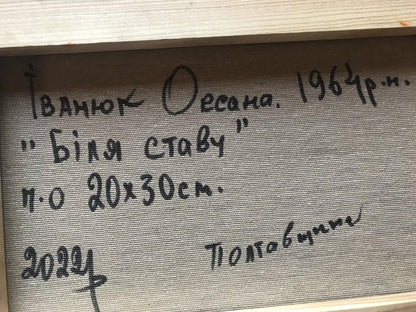 Іванюк Оксана. 1964р.н.
"Біля ставу"
п.о 20х30см.
2022р Полтавщина